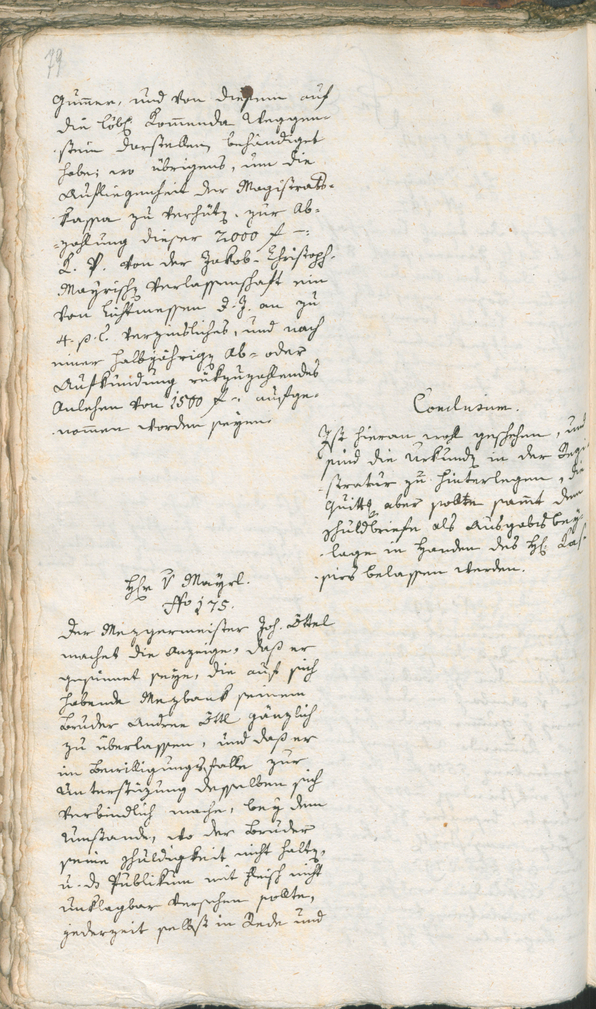 79
Gummer, und von diesem auf
die löbl. Kommenda Weggen-
stein darstellen behändiget
habe; wo übrigens, um die
Aufliegenheit der Magistrats-
kassa zu verhütz. zur Ab-
zahlung dieser 2000 f –:
von der Jakob-Christoph-
Mayrischen Verlassenschaft ein
von Lichtmessen d. J. an zu
4. p. C. verzinsliches, und nach
einer halbjährigen Ab- oder
Aufkündung rükzuzahlendes
Anlehen von 1500 f –: aufge-
nommen worden seyen.
Conclusum.
Ist hieran wohl geschehen, und
sind die Urkunden in der Regi-
stratur zu hinterlegen, die
Quittg. aber sollte sammt dem
Schuldbriefe als Ausgabsbey-
lage in Handen des H. Cas-
siers belassen werden.
Hr. v Mayrl.
No 175.
Der Mezgermeister Joh. Öttel
machet die Anzeige, daß er
gesinnet seye, die auf sich
habende Mezbank seinem
Bruder Andree Öttl gänzlich
zu überlassen, und daß er
im Bewilligungsfalle zur
Unterstüzung desselben sich
verbindlich mache, bey dem
Umstande, wo der Bruder
seine Schuldigkeit nicht halten,
u. ds Publikum mit Fleisch nicht
unklagbar versehen sollte,
jederzeit selbst in Rede und